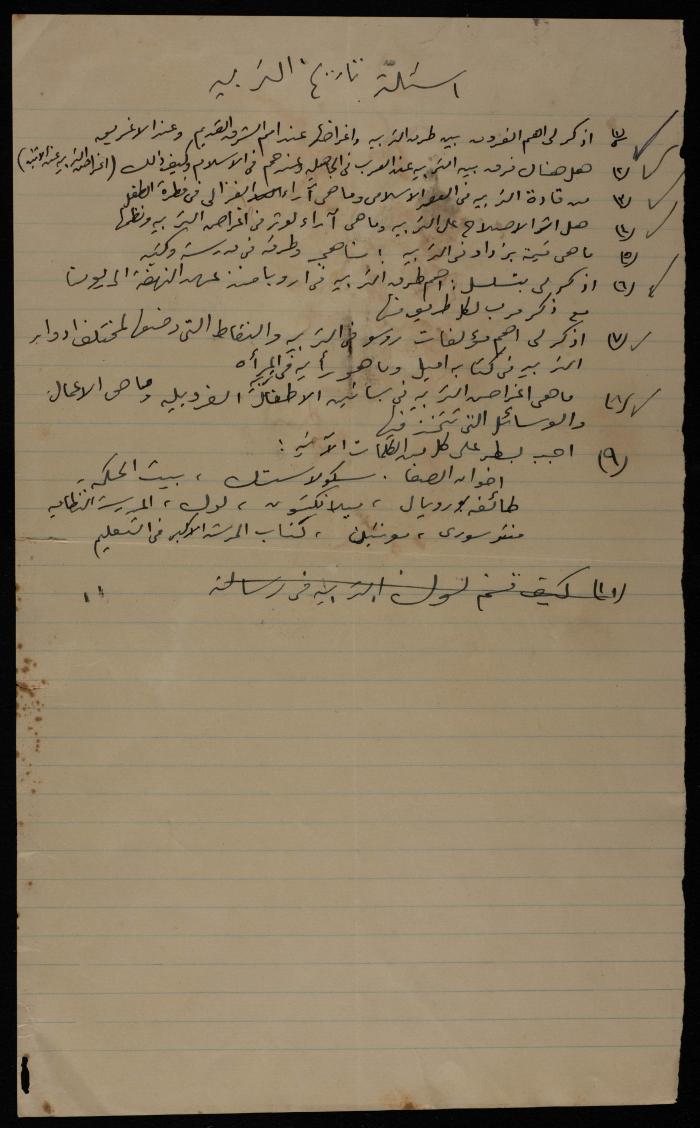 اسئلة تاريخ التربيه
(١) اذكر لي اهم الفروق بين طرق التربيه واغراضها عند امم الشرق القديم وعند الاغريق
(٢) هل هناك فرق بين التربيه عند العرب في الجاهليه وعندهم في الاسلام وكيف ذالك (اغراض التربيه عند الاثنين)
(٣) من قادة التربيه في العصر الاسلامي وما هي آراء الغزالي في فطرة الطفل
(٤) هل اثر الاصلاح على التربيه وما هي آراء لوثر في اغراض التربيه ونظمها
(٥) ما هي قيمة بزداو في التربيه : مناهجي وطرقه في مدرسته وكتبه
(٦) اذكر لي بتسلسل : اهم طرق التربيه في اروبا منذ عهد النهضة الى يومنا
مع ذكر مرب لكل طريق منها
(٧) اذكر لي اهم مؤلفات روسو في التربيه والنقاط التي وضعها لمختلف ادوار
التربيه في كتابه اميل وما هو رأيه في المرأه
(٨) ما هي اغراض التربيه في بساتين الاطفال الفروبليه وما هي الاعمال
والوسائل التي تتخذ فيها
(٩) اجب بسطر على كل من الكلمات الآتيه :
اخوان الصفا . سكولاستك ، بيت الحكمة
طائفه بورويال ، ميلانكتون ، لوك ، المدرسة النظاميه
منتسوري ، مونتين ، كتاب المرشد الاكبر في التعليم
(١٠) كيف قسم لوك التربيه في رسالته